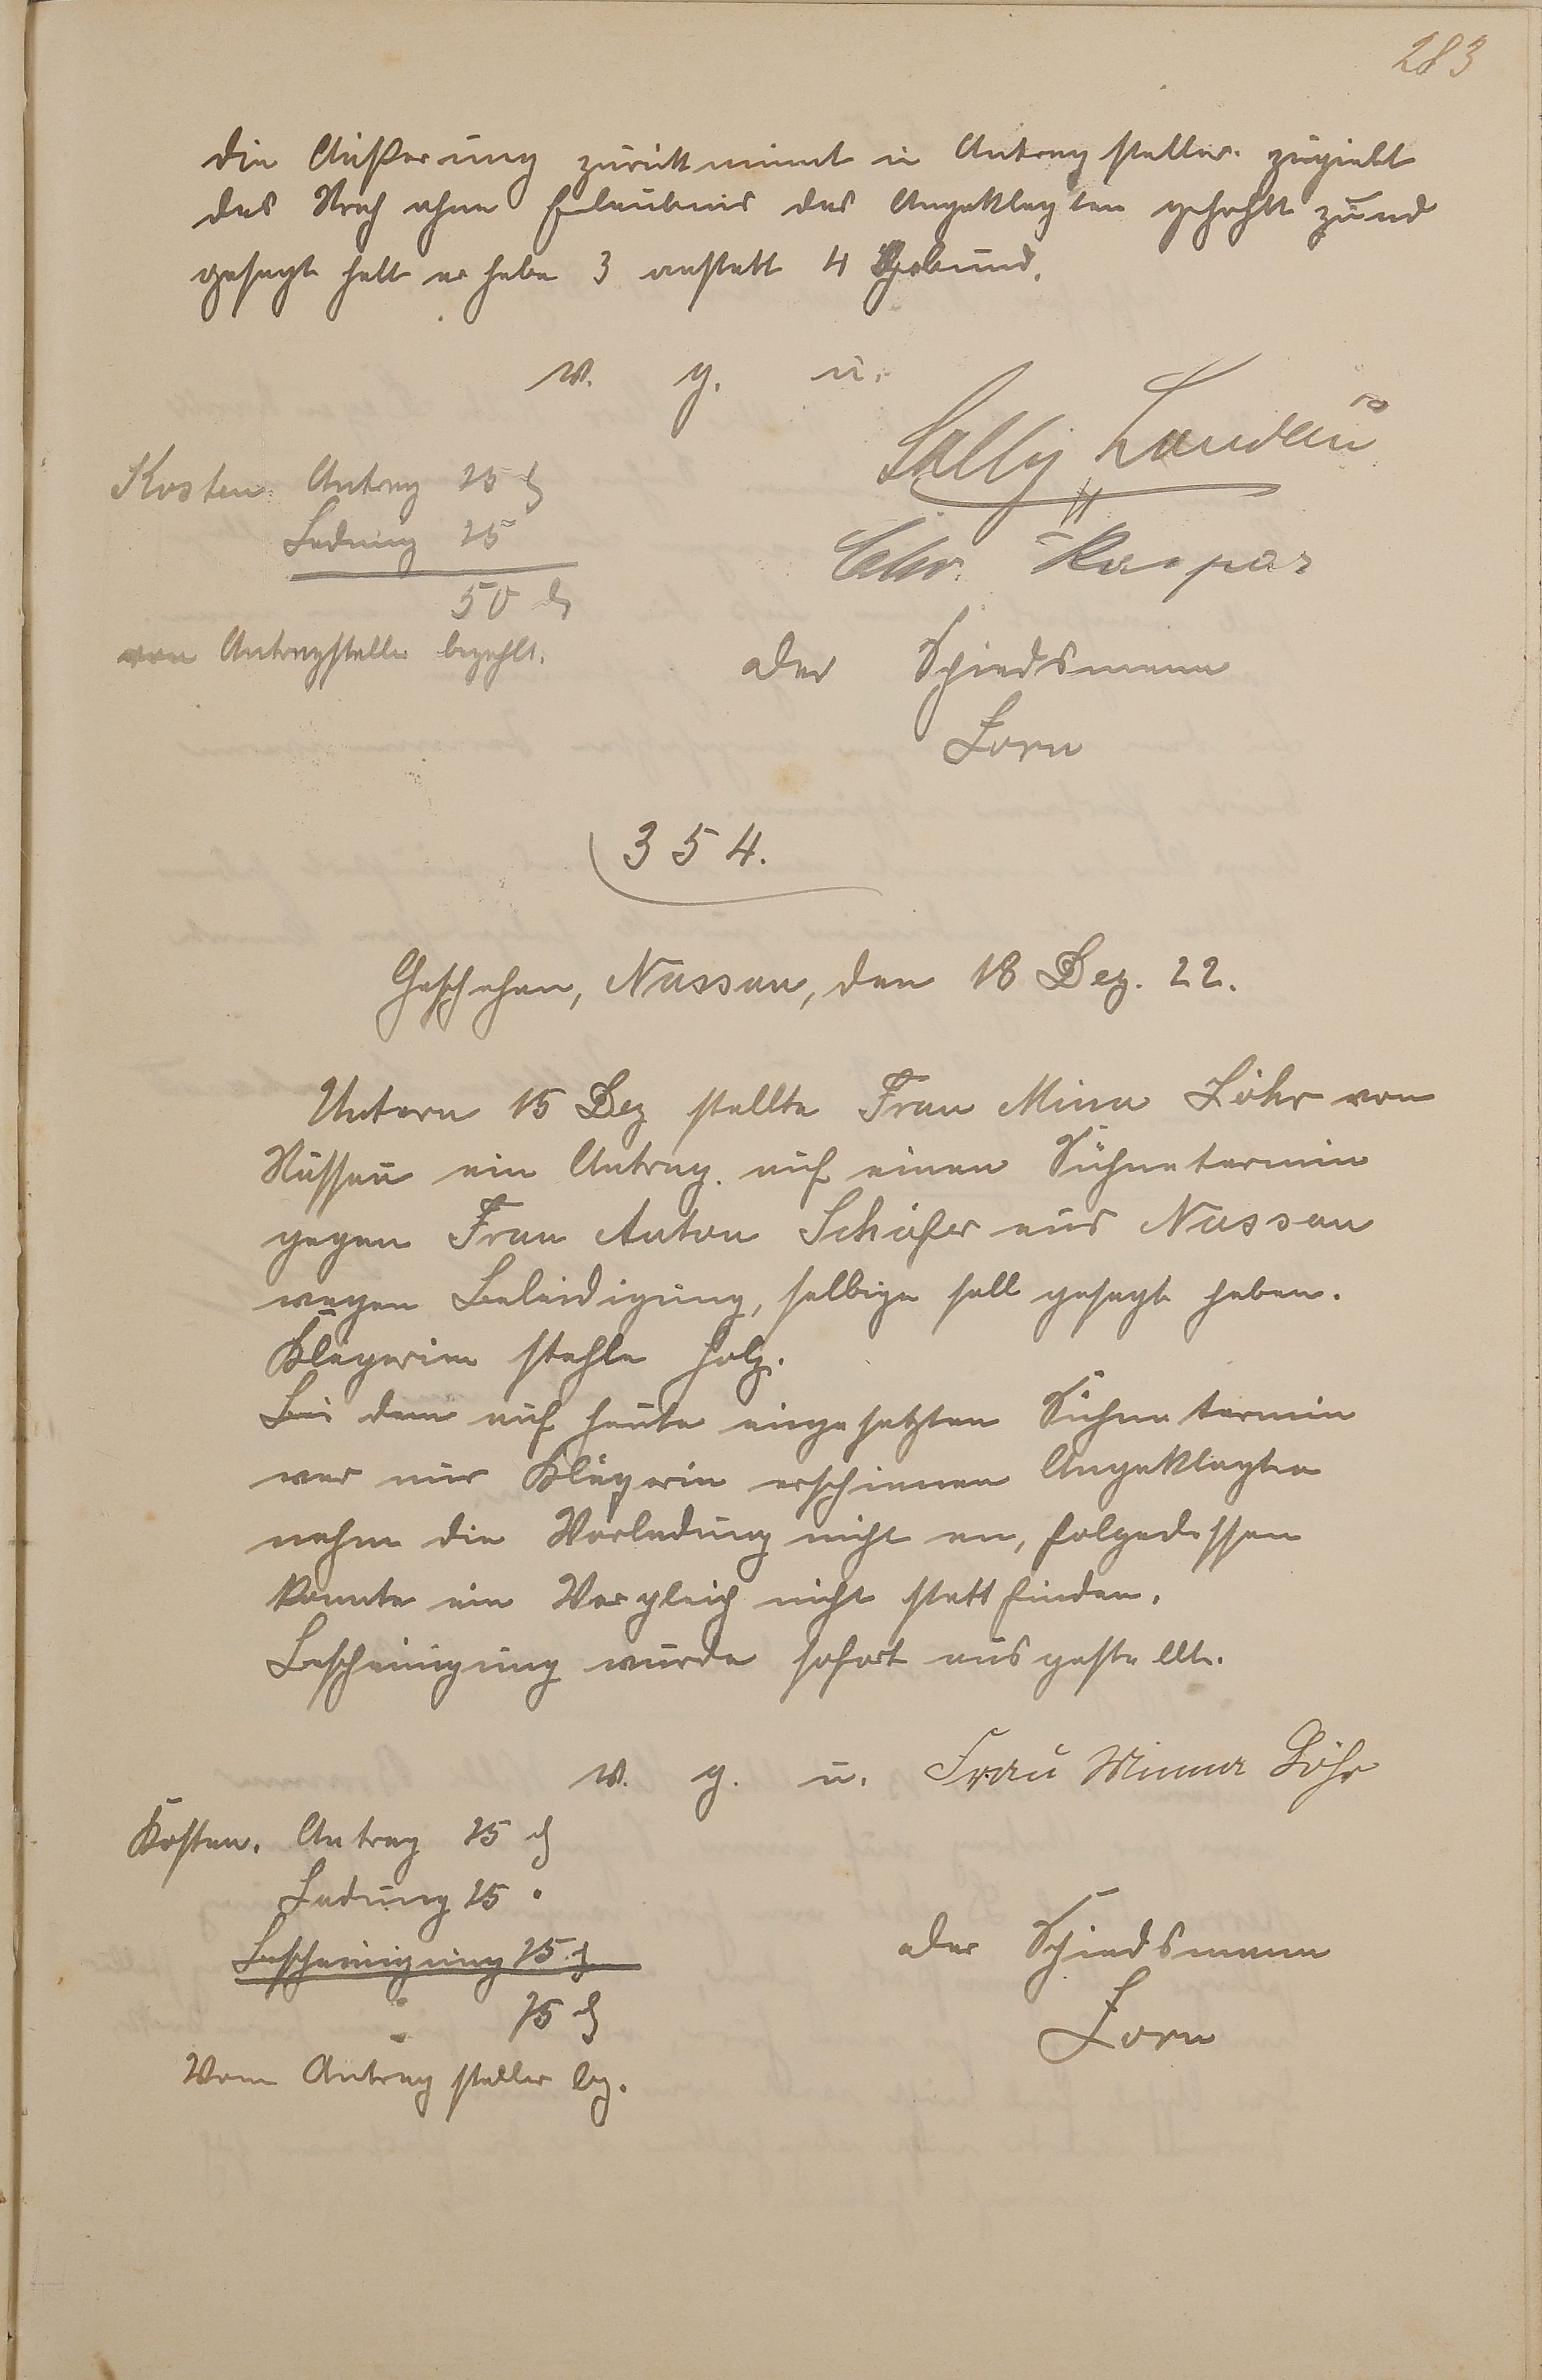 283
die Äußerung zurükknimmt u Antragsteller zugiebt
das Stroh ohne Erlaubnis des Angeklagten gehohlt zund
gesagt hatt er habe 3 anstatt 4 Gebund.
w. g. u.
Sally Landau
Kosten: Antrag 25 ₰
Ladung 25
Chr. Kaspar
50 ₰
von Antragsteller bezahlt.
der Schiedsmann
Zorn
354.
Geschehen, Nassau, den 18 Dez. 22.
Untern 15 Dez stellte Frau Mina Löhr von
Nassau ein Antrag auf einen Sühnetermin
gegen Frau Anton Schäfer aus Nassau
wegen Beleidigung, selbige soll gesagt haben.
Klägerin stehle Holz.
Bei dem auf heute angesetzten Sühnetermin
war nur Klägerin erschienen Angeklagte
nahm die Vorladung nicht an, folgedessen
konnte ein Vergleich nicht stattfinden.
Bescheinigung wurde sofort ausgestellt.
w. g. u. Frau Minna Löhr
Kosten. Antrag 25 ₰
Ladung 25 "
Bescheinigung 25 ₰
der Schiedsmann
75 ₰
Zorn
Vom Antragsteller bz.